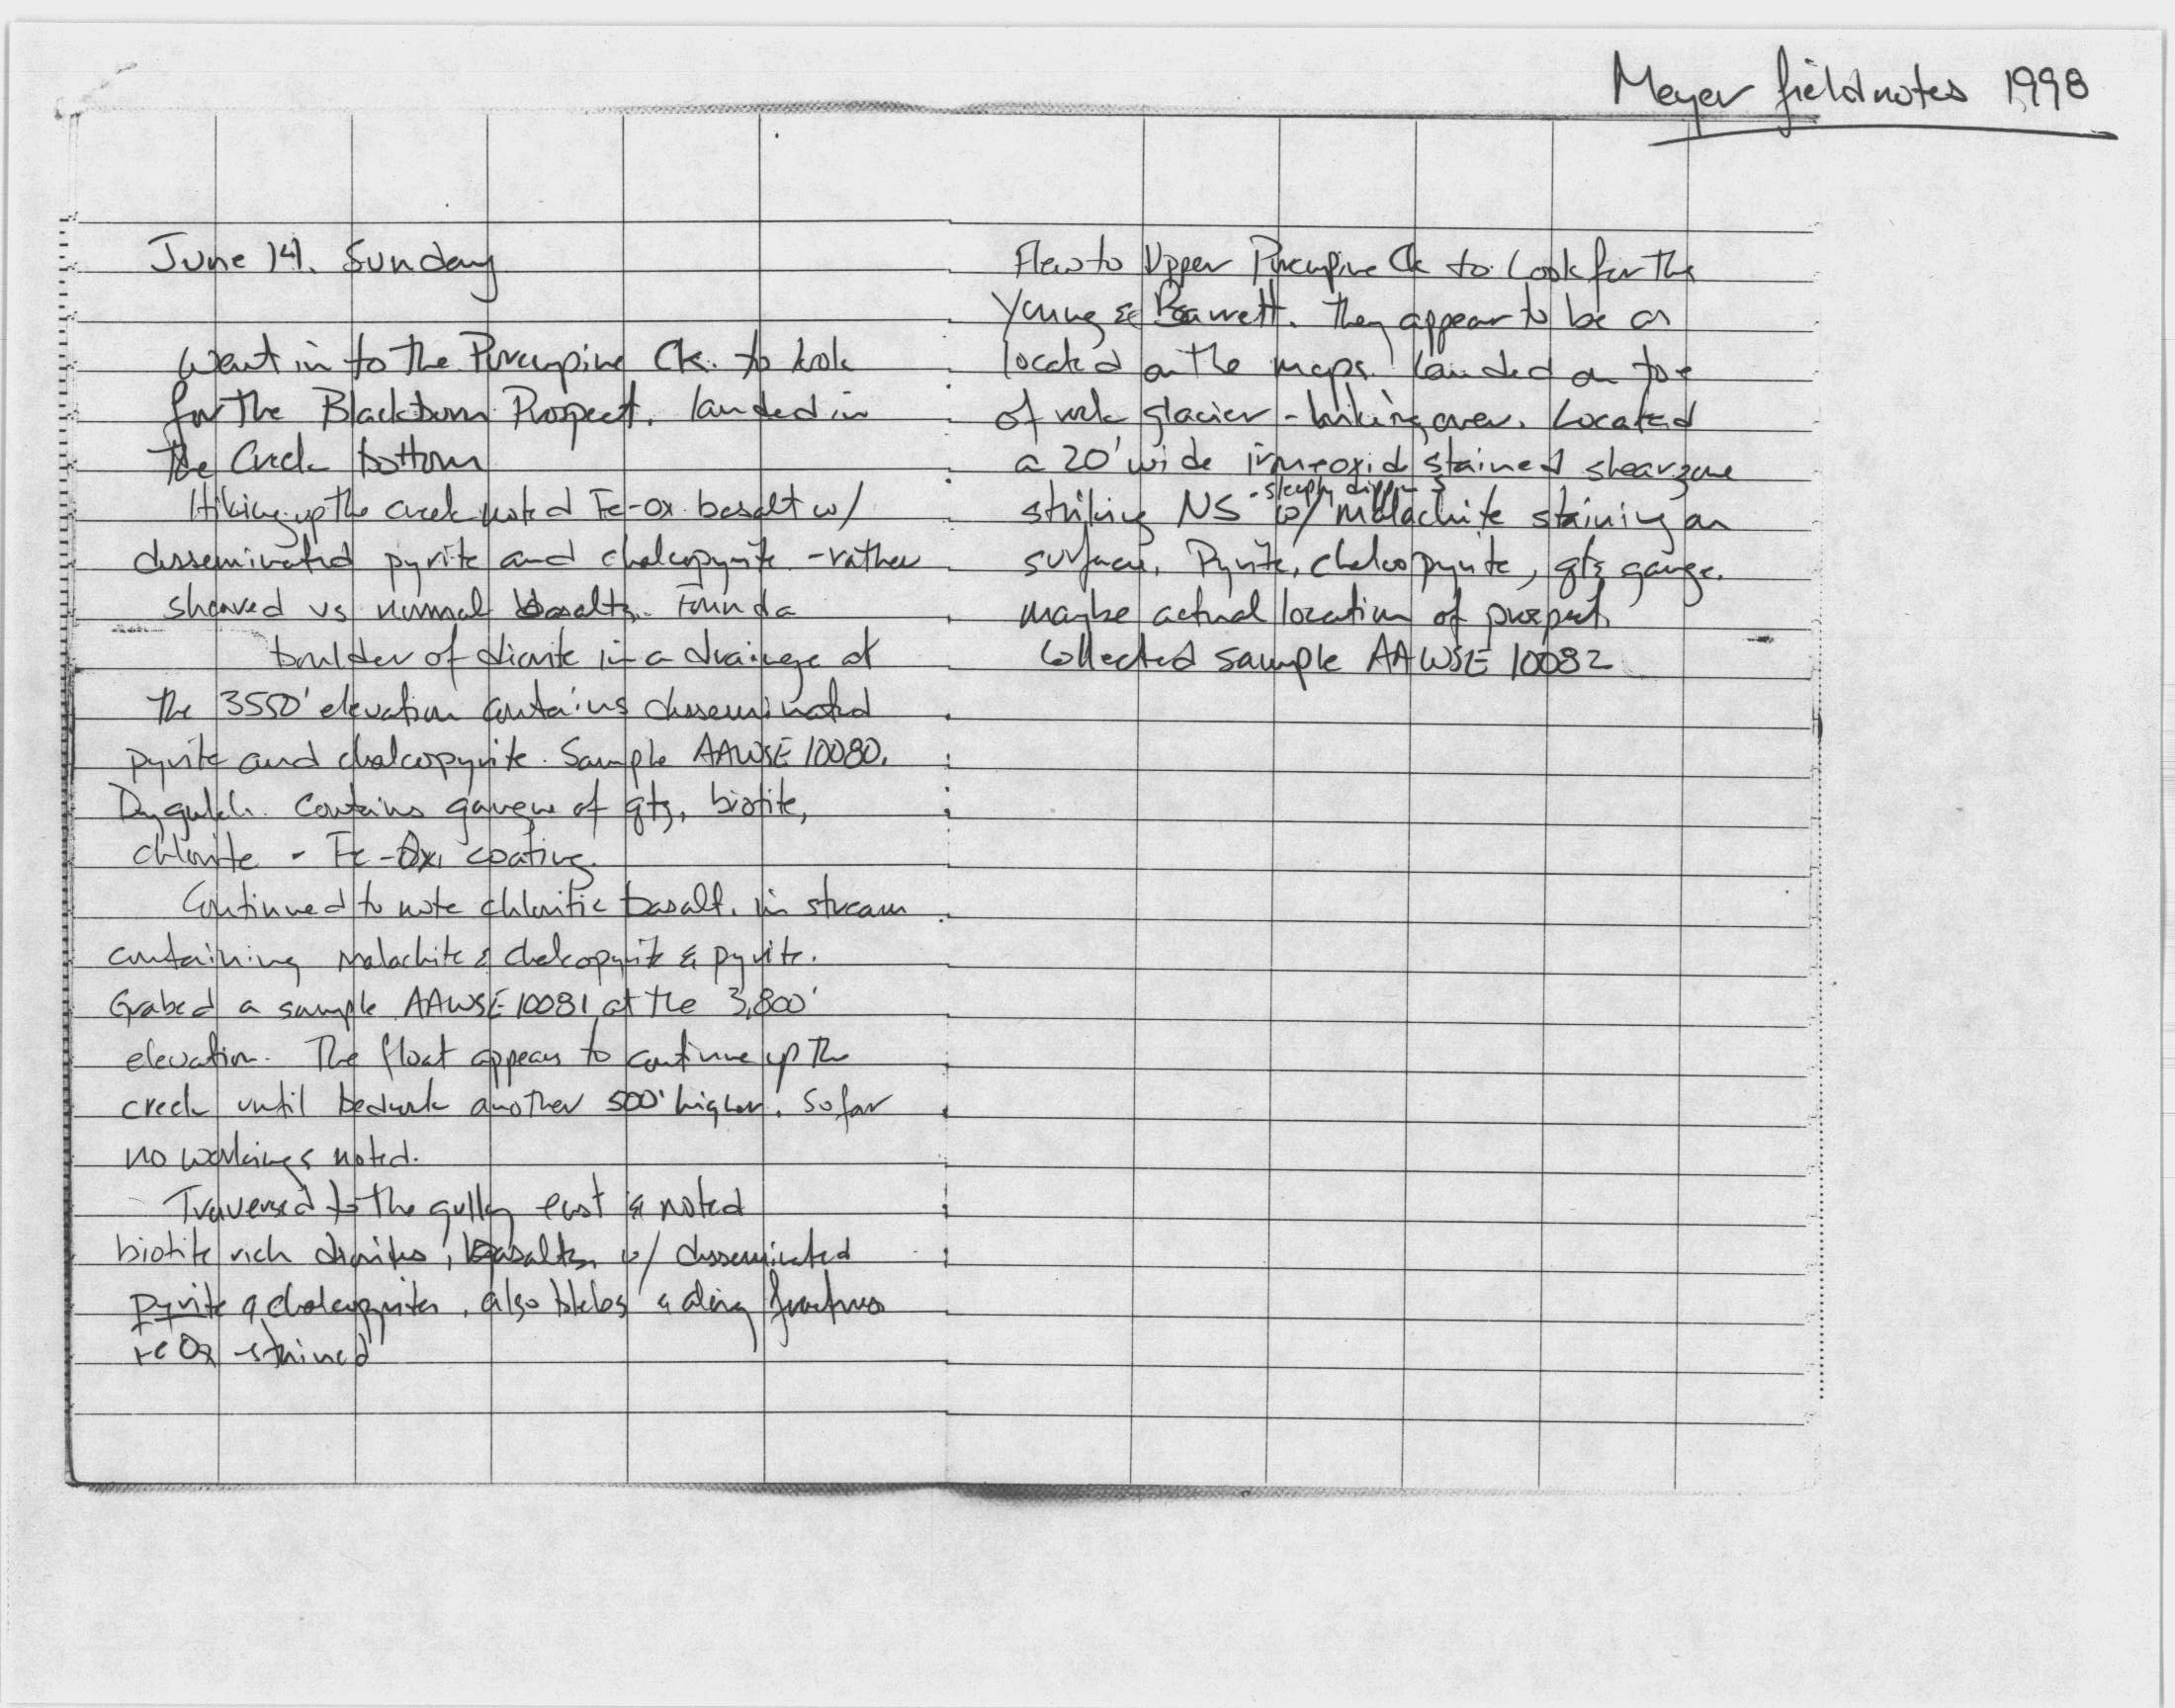 Meyer fieldnotes 1998
June 14. Sunday
Went in to the Porcupine Ck. to look
for the Blackburn Prospect. landed in
the Creek bottom
Hiking up the creek noted Fe-Ox basalt w/
disseminated pyrite and chalcopyrite - rather
sheared vs normal basalts. Found a
boulder of diorite in a drainage at
the 3550' elevation contains disseminated
pyrite and chalcopyrite. Sample AAWSE 10080.
Dry gulch. Contains gangue of qtz, biotite,
chlorite - Fe-Ox, coating.
Continued to note chloritic basalt. in stream
containing malachite & chalcopyrite & pyrite.
Grabed a sample AAWSE 10081 at the 3,800'
elevation. The float appears to continue up the
creek until bedrock another 500' higher. So far
no workings noted.
Traversed to the gully east & noted
biotite rich diorites, basalts w/ disseminated
pyrite & chalcopyrites, also blebs & along fractures
FeOx stained
Flew to Upper Porcupine Ck to Look for the
Young & Barrett. They appear to be as
located on the maps. Landed on toe
of rock glacier - hiking over. Located
a 20' wide iron-oxid stained shearzone
- steeply dipping
striking NS w/ malachite staining on
surface. Pyrite, chalcopyrite, qtz gange.
maybe actual location of prospect.
Collected sample AAWSE 10082